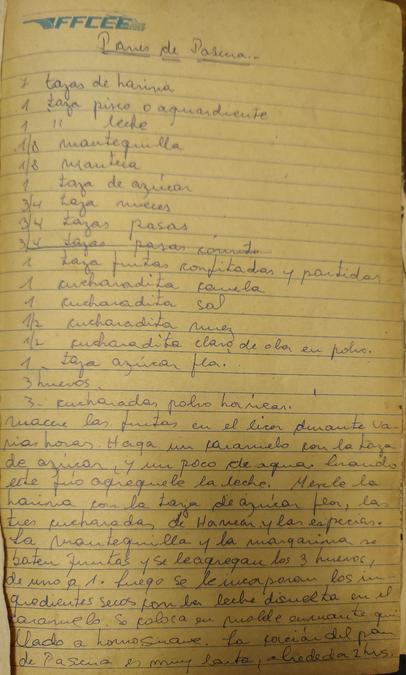 FFCCEE
Panes de Pascua..
7 tazas de harina
1 taza pisco o aguardiente
1 " leche
1/8 mantequilla
1/8 manteca
1 taza de azúcar
3/4 taza nueces
3/4 tazas pasas
3/4 tazas pasas corinto
1 taza frutas confitadas y partidas
1 cucharadita canela
1 cucharadita sal
1/2 cucharadita nuez
1/2 cucharadita clavo de olor en polvo.
1 taza azúcar flor.
3 huevos.
3 - cucharadas polvo hornear.
Macere las frutas en el licor durante va-
rias horas. Haga un caramelo con la taza
de azúcar, y un poco de agua. Cuando
esté frío agréguele la leche. Mezcle la
harina con la taza de azúcar flor, las
tres cucharadas de Hornear y las especias.
La mantequilla y la margarina se
baten juntas y se le agregan los 3 huevos,
de uno a 1. Luego se le incorporan los in-
gredientes secos con la leche disuelta en el
caramelo. Se coloca en molde
a horno suave. La cocción del pan
de Pascua es muy lenta, alrededor 2 hrs.